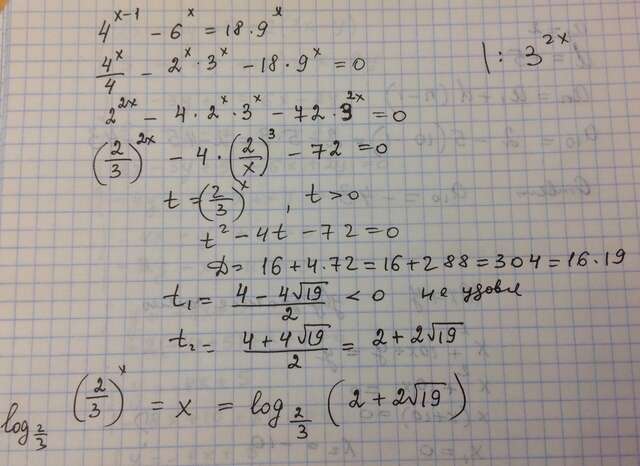 4^(x-1) - 6^x = 18 · 9^x
4^x/4 - 2^x · 3^x - 18 · 9^x = 0 | : 3^(2x)
2^(2x) - 4 · 2^x · 3^x - 72 · 3^(2x) = 0
(2/3)^(2x) - 4 · (2/x)^3 - 72 = 0
t = (2/3)^x , t > 0
t^2 - 4t - 72 = 0
D = 16 + 4 · 72 = 16 + 288 = 304 = 16 · 19
t₁ = (4 - 4√19)/2 < 0 не удовл
t₂ = (4 + 4√19)/2 = 2 + 2√19
log_(2/3) (2/3)^x = x = log_(2/3) (2 + 2√19)